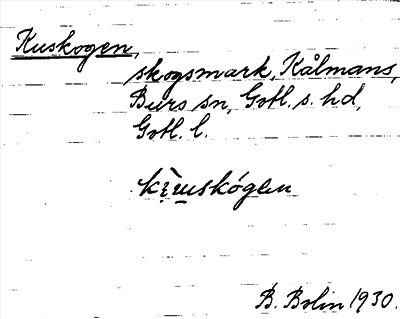 Kuskogen,
skogsmark, Kålmans,
Burs sn, Gotl. s. hd,
Gotl. l.
B. Bolin 1930.